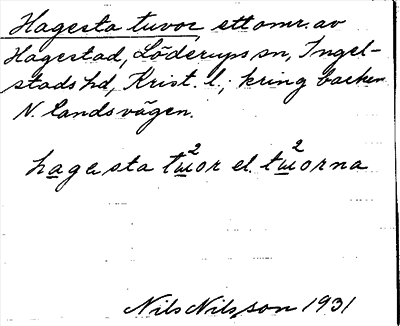 Hagesta tuvor, ett omr. av
Hagestad, Löderups sn, Ingel-
stads hd, Krist. l.; kring backen
N. landsvägen.
hagesta tu²or el. tu²orna
Nils Nilsson 1931